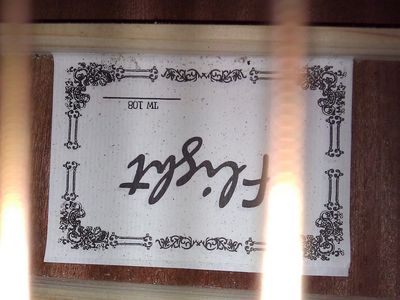 Flight
TW 108